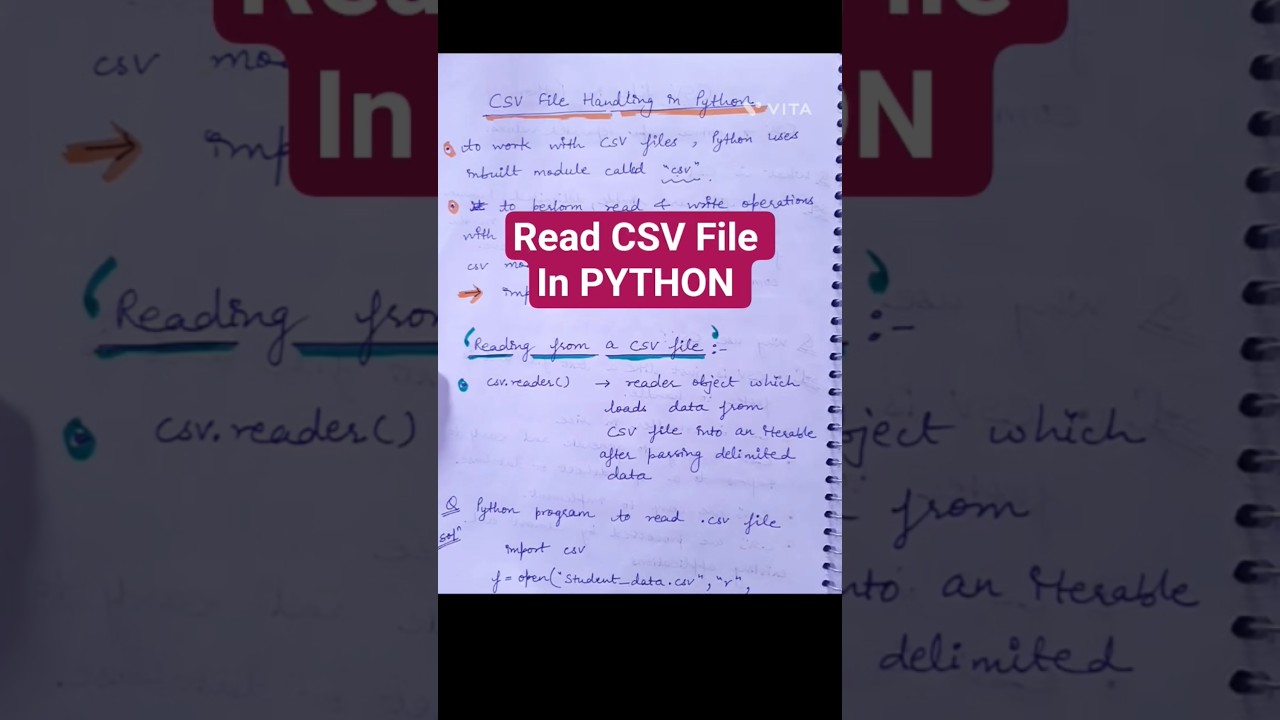 CSV File Handling in Python
VITA
to work with CSV files, Python uses
inbuilt module called "csv".
to perform read & write operations
with
Read CSV File
In PYTHON
csv mo
imp
Reading from a CSV file :-
csv.reader() → reader object which
loads data from
CSV file into an iterable
after parsing delimited
data
Q Python program to read .csv file
Solⁿ
import csv
f = open("Student_data.csv", "r",